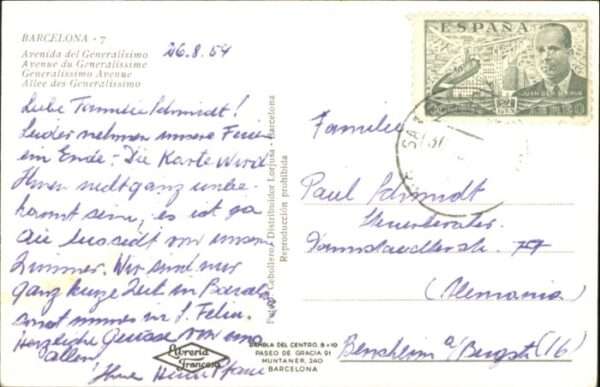 BARCELONA - 7
Avenida del Generalísimo
Avenue du Generalissime
Generalissimo Avenue
Allee des Generalissimo
26.8.54
Liebe Familie Schmidt!
Leider nehmen unsere Ferien
ein Ende. Die Karte wird
Ihnen nicht ganz unbe-
kannt sein, es ist ja
die Aussicht von unserm
Zimmer. Wir sind nur
ganz kurze Zeit in Barcelo
sonst immer in S. Feliu.
Herzliche Grüsse von uns
allen!
Ihre
Caballero - Distribuidor Lorjusa - Barcelona
Reproducción prohibida
Librería
Francesa
RAMBLA DEL CENTRO, 8 y 10
PASEO DE GRACIA 91
MUNTANER, 240
BARCELONA
ESPAÑA
JUAN DE LA CIERVA
Familie
Paul Schmidt
Steuerberater
Darmstaedterstr.
(Alemania)
Bensheim a/Bergstr (16)